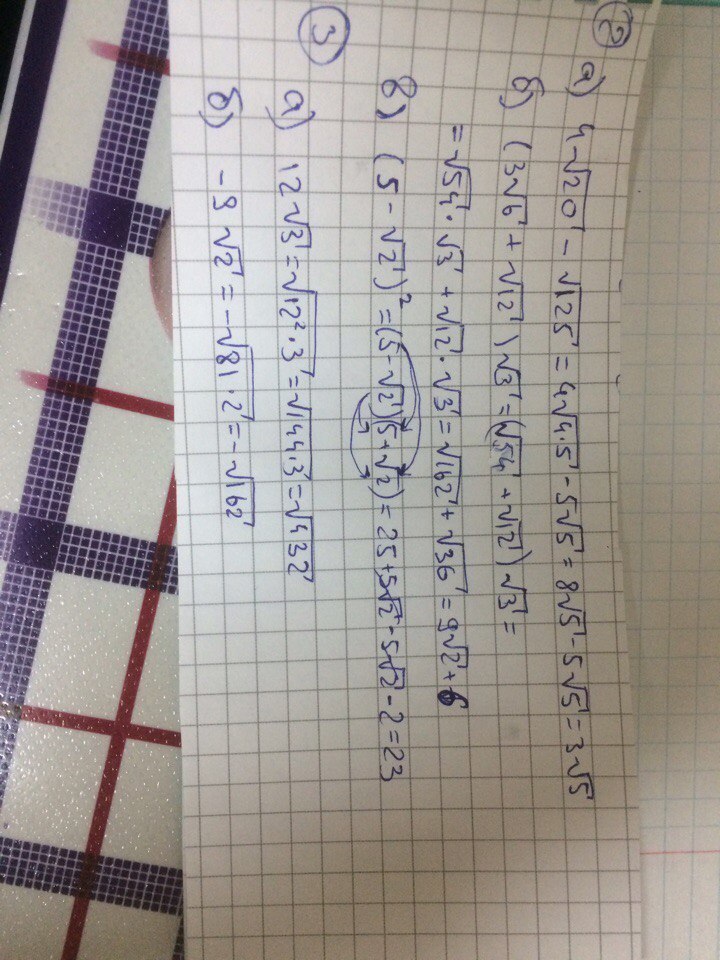 ②
а) 4√20 - √125 = 4√4·5 - 5√5 = 8√5 - 5√5 = 3√5
б) (3√6 + √12)√3 = (√54 + √12)√3 =
= √54 · √3 + √12 · √3 = √162 + √36 = 9√2 + 6
в) (5 - √2)² = (5-√2)(5+√2) = 25+5√2 - 5√2 - 2 = 23
③
а) 12√3 = √12²·3 = √144·3 = √432
б) -9√2 = -√81·2 = -√162